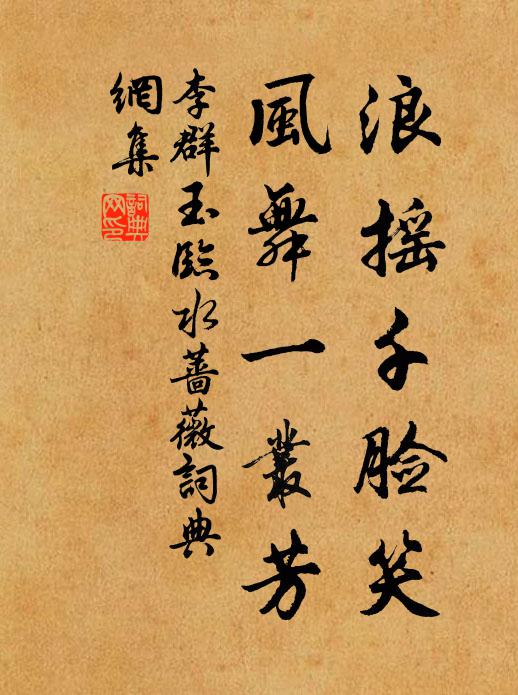 浪摇千脸笑
風舞一叢芳
李群玉臨水薔薇詞典
網集
詞典
网印